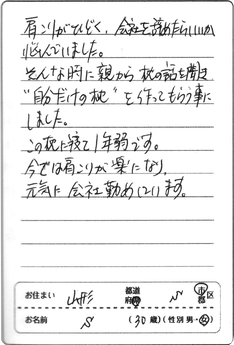 肩こりがひどく、会社を辞めたらいいか
悩んでいました。
そんな時に親から枕の話を聞き
"自分だけの枕"を作ってもらう事に
しました。
この枕に寝て1年弱です。
今では肩こりが楽になり、
元気に会社勤めしています。
お住まい 山形 都道府県 N 市区郡
お名前 S (30歳)(性別 男・女)